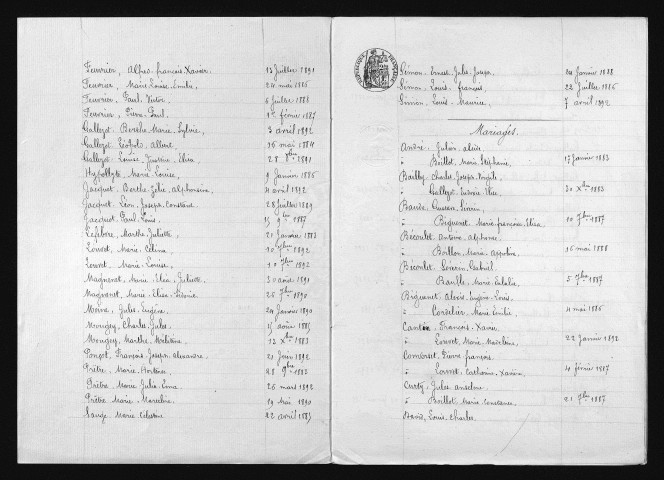 Feuvrier, Alfred françois Xavier. 13 Juillet 1891
Feuvrier Marie Louise Emilie, 24 mai 1886
Feuvrier, Paul Victor 6 Juillet 1888
Feuvrier, Pierre Paul. 1er février 1887
Gallezot Berthe Marie Sylvie, 3 avril 1892
Gallezot Léopold Albert, 16 mai 1884
Gallezot Louise Justine Elisa, 28 1891
Hypollyte Marie Louise, 9 Janvier 1886
Jacquet, Berthe Zélie Alphonsine, 11 avril 1892
Jacquet, Léon Joseph Constant 28 Juillet 1889
Jacquot Paul Louis. 15 9bre 1887
Lefebvre, Marthe Juliette 20 Janvier 1883
Louvet, Marie Célina 20 7bre 1892
Louvet Marie Louise, 10 7bre 1892
Magnenet, Marie Elisa Juliette 30 août 1891
Magnenet, Marie Elise Léonie 26 7bre 1890
Moine, Jules Eugène. 24 Janvier 1890
Mougey, Charles Jules. 15 août 1885
Mougey, Marthe 12 Xbre 1883
François Joseph alexandre. 21 Juin 1892
Prêtre, Marie Hortense 28 9bre 1883
Prêtre, Marie Julia Emma 26 mars 1892
Prêtre Marie 19 Mai 1890
Sauge Marie Célestine 22 avril 1885
Simon Ernest Jules Joseph. 24 Janvier 1888
Simon, Louis françois, 22 Juillet 1886
Simon, Louis Maurice. 7 avril 1892
Mariages.
André Julien alcide
à Boillot, Marie Stéphanie. 17 Janvier 1883
Bailly, Charles Joseph
à Gallezot Ludovie Elise 30 Xbre 1883
Gustave
à Biguenet Marie françoise Elisa. 10 7bre 1887
Bécoulet Antoine Alphonse.
à Boillon Marie Appoline. 16 mai 1888
Bécoulet Séverin Gabriel
à Marie Eulalie 5 7bre 1887
Biguenet Alexis Eugène Louis.
à Cordelier, Marie Emilie. 4 mai 1886
François Xavier
à Louvet, Marie Madeleine. 22 Janvier 1892
Pierre françois.
à Louvet Catherine 4 février 1887
Jules anselme
à Boillot Marie Constance 21 9bre 1887
Louis Charles.